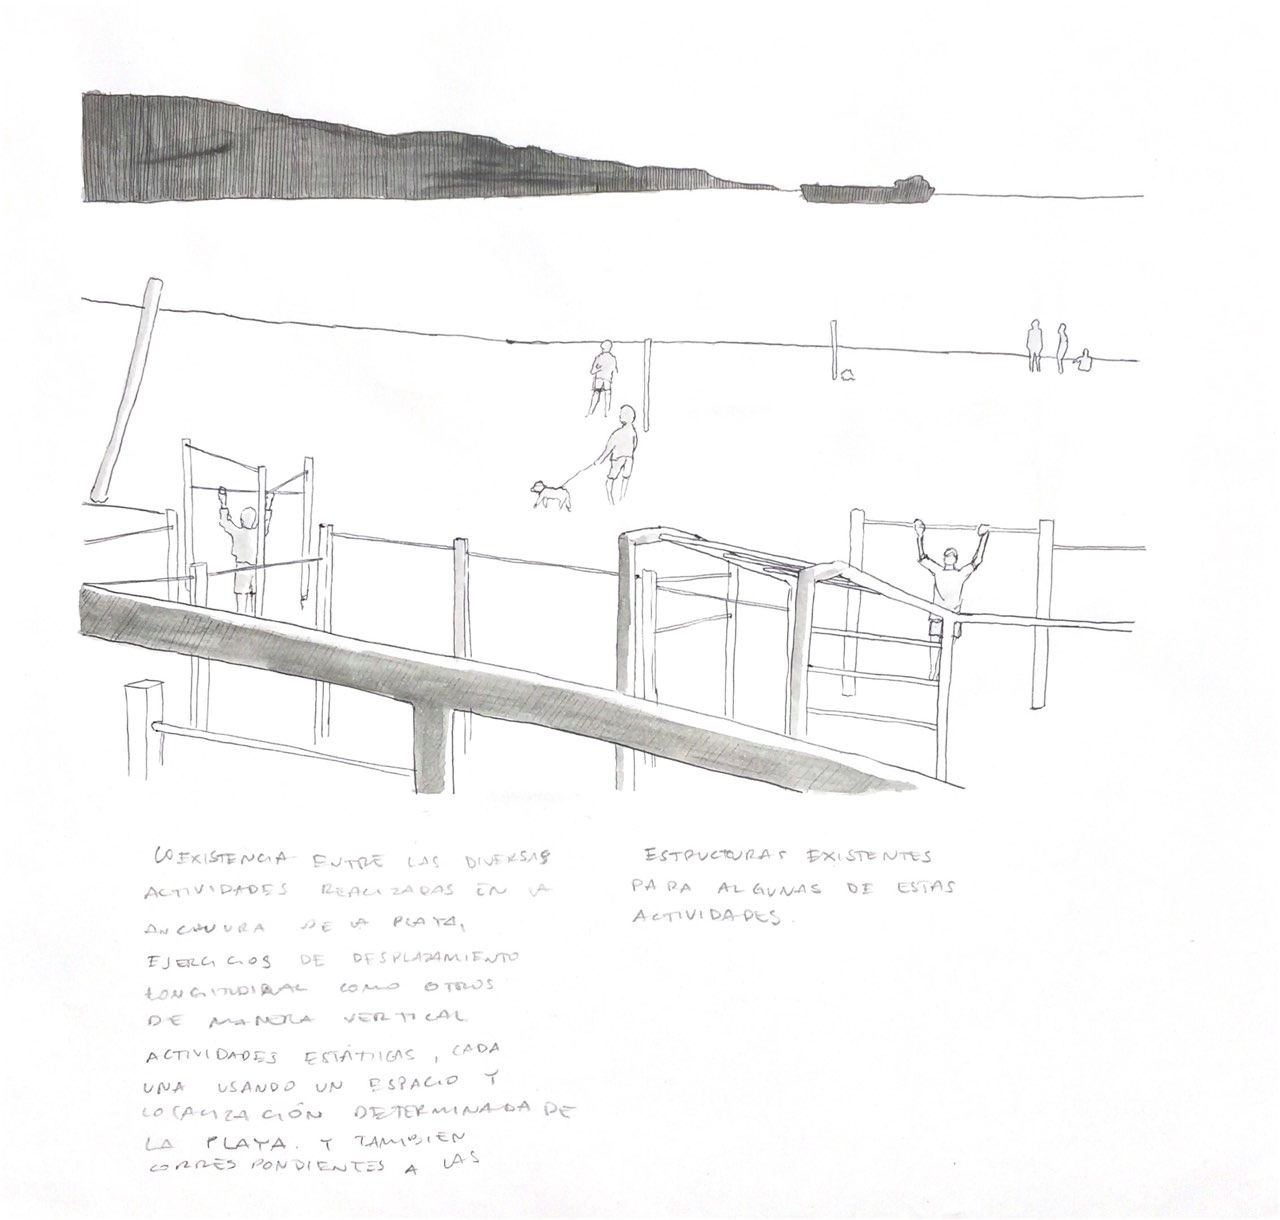 COEXISTENCIA ENTRE LAS DIVERSAS
ACTIVIDADES REALIZADAS EN LA
ANCHURA DE LA PLAYA,
EJERCICIOS DE DESPLAZAMIENTO
LONGITUDINAL COMO OTROS
DE MANERA VERTICAL
ACTIVIDADES ESTÁTICAS, CADA
UNA USANDO UN ESPACIO Y
LOCALIZACIÓN DETERMINADA DE
LA PLAYA. Y TAMBIEN
CORRESPONDIENTES A LAS
ESTRUCTURAS EXISTENTES
PARA ALGUNAS DE ESTAS
ACTIVIDADES.